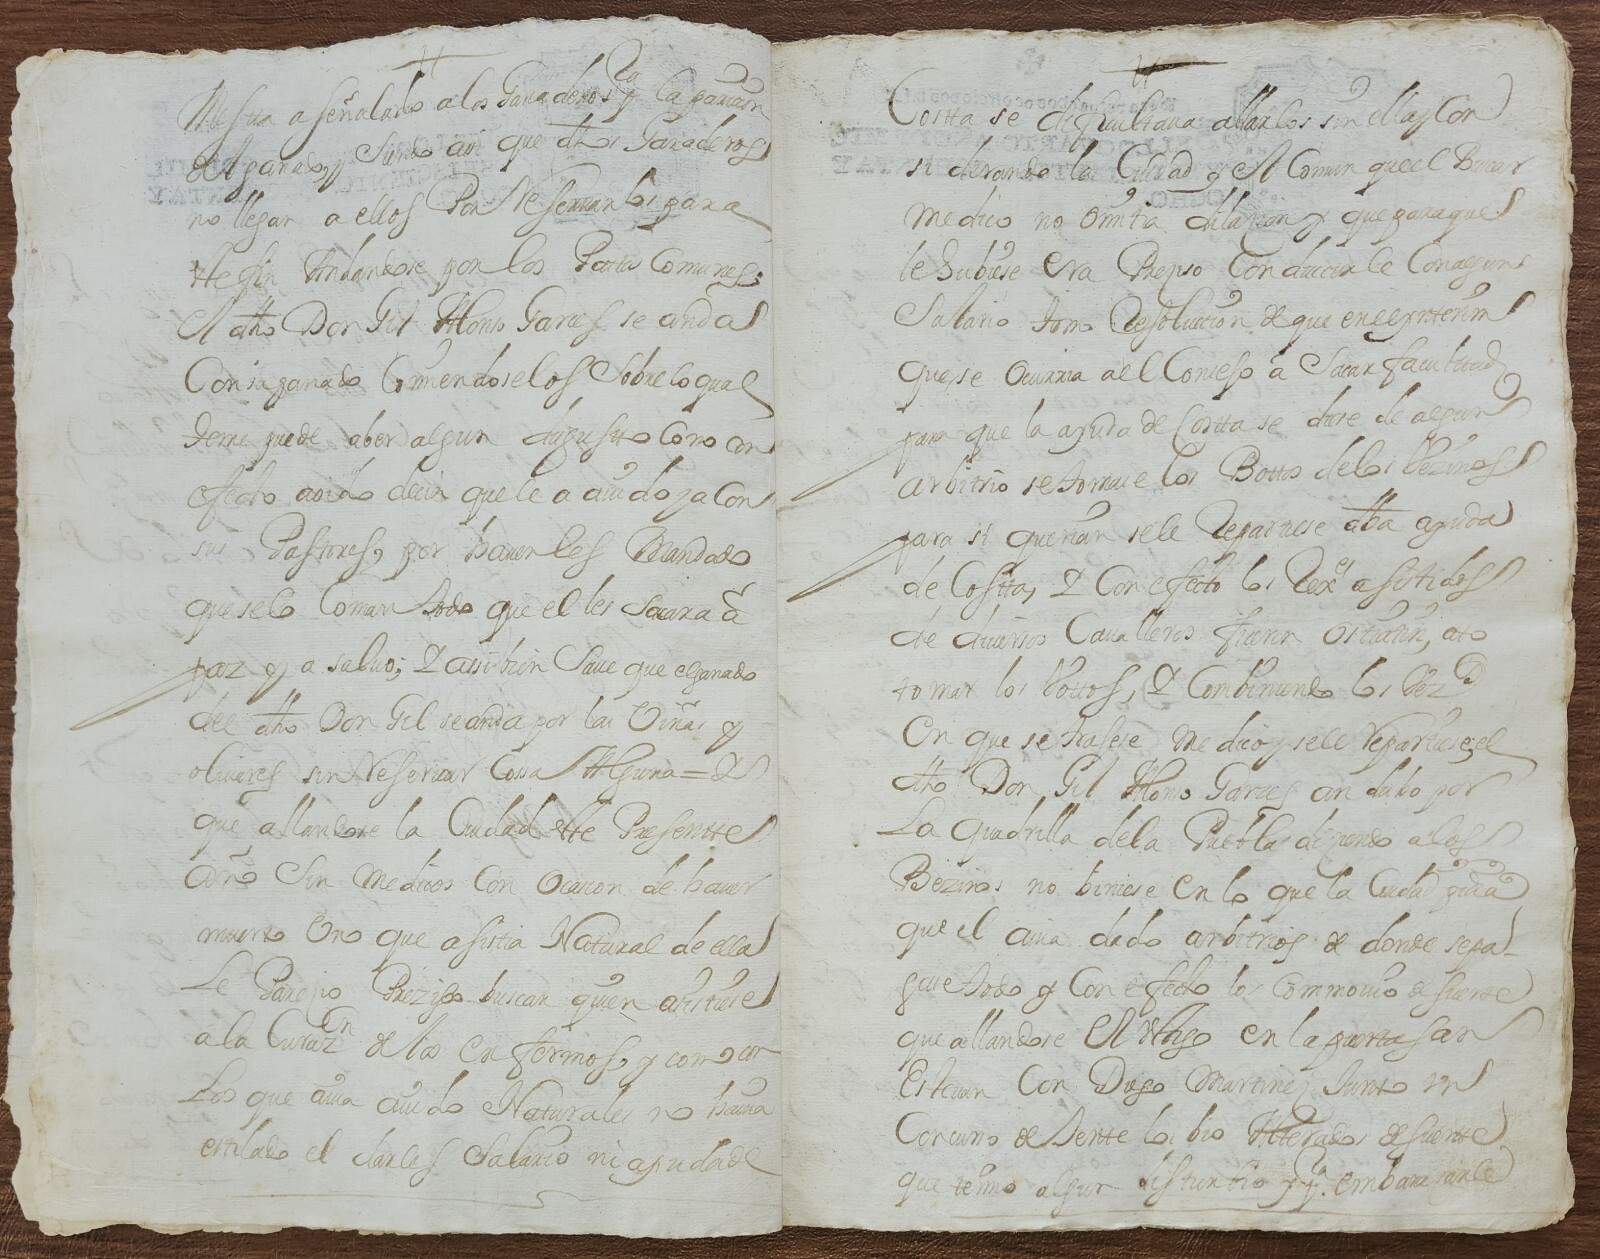 Mestta a señalado a los Ganaderos pa la
del ganado, y siendo asi que dhos Ganaderos
no llegan a ellos Por Reserbarlos para
este fin Andandose por los Pastos Comunes;
el dho Don Gil Alonso Garces se anda
Con su ganado Comiendoselos Sobre lo qual
teme puede aber algun disgusto Como en
efecto a oido decir que le a auido ya Con
sus Pastores, por hauerles Mandado
que se lo Coman todo que el les Sacara â
paz y a saluo; Y assi bien Saue que el ganado
del dho Don Gil se anda por las Viñas y
oliuares sin Reseruar Cossa Alguna = Y
que allandose la Ciudad este Presentte
año Sin Medicos Con Ocasion de hauer
muerto Uno que asistia Natural de ella
Le Parezio Preziso buscar quien asistiese
a la Curazn de los enfermos, y como con
Los que auia auido Naturales no hauia
estilado el darles Salario ni ayuda de
Costta se dificultaua allarlos sin ella, y Con
siderando la Ciudad y el Comun que el Buscar
Medico no Omitia dilacion y que para que
le hubiese era Preziso Conducirle Con algun
Salario tomo Resolucion de que en el ynterin
que se Ocurria a el Consejo â Sacar facultad
para que la ayuda de Costta se diese de algun
arbitrio se tomase los Bottos de los Vezinos
para si querian se le Repartiese dha ayuda
de Costta, Y Con efecto los Rexes asistidos
de diuersos Caualleros fueron
tomar los Vottos, Y Combiniendo los Vezos
En que se trajese Medico y se le Repartiese, el
dho Don Gil Alonso Garces andubo por
La quadrilla de la Puebla diciendo a los
Bezinos no biniese en lo que la Ciudad pidia
que el auia dado arbitrios de donde sepa-
gase todo y Con efecto los Commouio de suerte
que allandose el ttgo en la puerta san
Esteuan Con Diego Martinez Junto un
Concurso de Jentte los bio Alterados de suerte
que temio algun disturbio y embarazarle